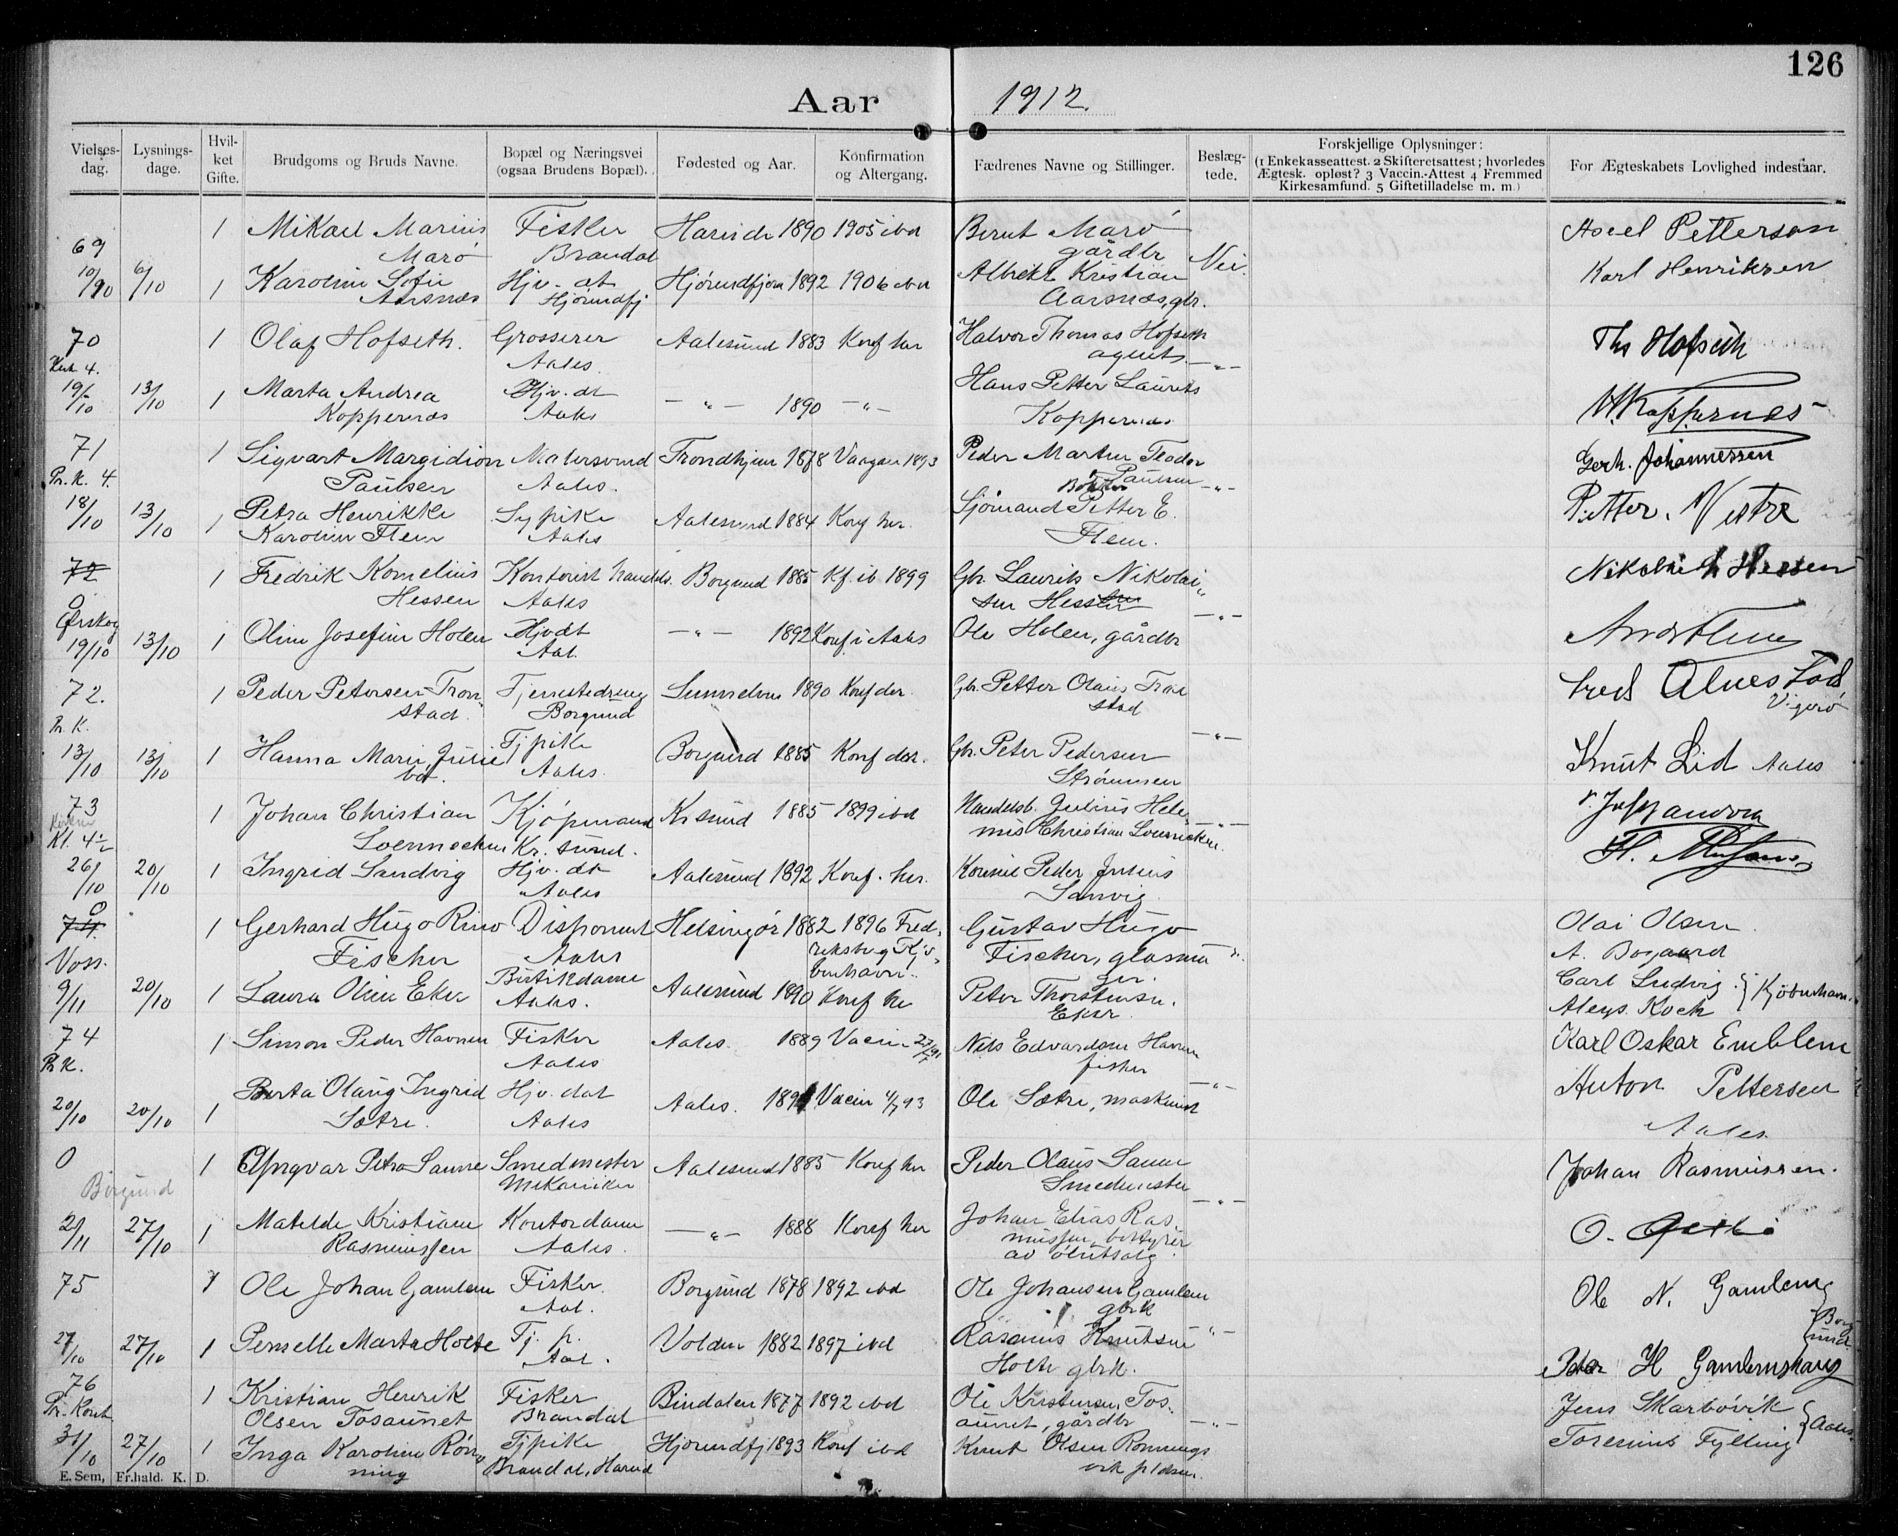 126
Aar 1912.
Vielses-dag. Lysnings-dage. Hvil-ket Gifte. Brudgoms og Bruds Navne. Bopæl og Næringsvei (ogsaa Brudens Bopæl). Fødested og Aar. Konfirmation og Altergang. Fædrenes Navne og Stillinger. Beslæg-tede. Forskjellige Oplysninger: (1 Enkekasseattest. 2 Skifteretsattest; hvorledes Ægtesk. opløst? 3 Vaccin.-Attest 4 Fremmed Kirkesamfund. 5 Giftetilladelse m. m.) For Ægteskabets Lovlighed indestaar.
69 1 Mikael Marius Fisker Hareide 1890 1905 ibd Bernt Marø Axel Petterson
Marø Brandal gårdbr Nei.
10/10 6/10 1 Karoline Sofie Hjv. dt Hjørundfjord 1892 1906 ibd Albrekt Kristian Karl Henriksen
Aarsnæs Hjørundfj Aarsnæs, gbr.
70 1 Olaf Hofseth. Grosserer Aalesund 1883 Konf her Halvor Thomas Hofseth Ths Hofseth
Aales. agent
19/10 13/10 1 Marta Andrea Hjv. dt — " — 1890 — " — Hans Petter Laurits
Koppernæs Aales Koppernæs Koppernæs
71 1 Sigvart Margidion Malersvend Trondhjem 1878 Vaagsø 1893 Peder Martin Teodor Gerh. Johannessen
Pr. K. 4. Paulsen Aales. Paulsen — " —
18/10 13/10 1 Petra Henrikke Sypike Aalesund 1884 Konf her. Sjømand Petter E. Petter. Vestre
Karoline Flem Aales Flem.
72 1 Fredrik Kornelius Kontorist handels. Borgund 1885 Kf. ib. 1899 Gbr. Laurits Nikolai Nikolai Hessen
Hessen Aales sen Hessen
0
Ørskog
19/10 13/10 1 Oline Josefine Holen Hjv dt — " — 1892 Konf i Aales Ole Holen, gårdbr — " —
Aal.
72. 1 Peder Petersen Tron- Tjenestedreng Sunnelven 1890 Konf der. Gbr. Petter Olaus Tron
stad. Borgund stad Vigerø
Pr. K.
13/10 13/10 1 Hanna Marie Julie Tjpike Borgund 1885 Konf der. Gbr. Peter Pedersen — " — Knut Lid Aales
Aales. Strømmen
73 1 Johan Christian Kjøpmand Kr sund 1885 1899 ibd Handelsb. Julius Hele
Kl. 4½ Loennechen Kr. sund. Christian Loennecken
26/10 20/10 1 Ingrid Sandvig Hjv. dt Aalesund 1892 Konf. her. Peder Julius
Aales Sanvig
74. 1 Gerhard Hugo Rino Disponent Helsingør 1882 1896 Fred- Gustav Hugo Olai Olsen
Voss. Fischer Aales riksberg Kjø- Fischer, glasmæ A. Bogaard
benhavn. ger.
9/11 20/10 1 Laura Oline Eker Butikdame Aalesund 1890 Konf he Peter Thorstensen Carl Ludvig } Kjøbenhavn.
Aales. Eker Aleys. Koch
74 1 Simon Peder Havnen Fisker Aales. 1889 Vacin Nils Edvardsen Havnen Karl Oskar Emblem
Pr K. Aales fisker — " —
20/10 20/10 1 Berta Olaug Ingrid Hjv. dat Aales. Vacin Ole Sætre, maskinist Anton Pettersen
Sætre. Aales Aales
0 1 Yngvar Petra Sanne Smedmester Aalesund 1885 Konf her Peder Olaus Sanne Johan Rasmussen.
Borgund Mekaniker Smedmester
2/11 27/10 1 Matilde Kristiane Kontordame — " — 1888 Konf her Johan Elias Ras- — " —
Rasmussen Aales. mussen, bestyrer
av ølutsalg.
75 1 Ole Johan Gamlem Fisker. Borgund 1878 1892 ibd Ole Johansen Gamlem Ole N. Gamlem
Aal. gbrk Borgund
27/10 27/10 1 Pernelle Marta Holte Tj. p. Volden 1882 1897 ibd Rasmus Knutsen — " — Peder H Gamlemshaug
Aal. Holte gbrk.
76 1 Kristian Henrik Fisker Bindalen 1877 1892 ibd Ole Kristensen Tos- Jens Skarbøvik } Aales
Pr. Kont Olsen Tosaunet Brandal aunet, gårdbr — " —
31/10 27/10 1 Inga Karoline Røn- Tjpike Hjørundfj 1893 Konf ibd Knut Olsen Rønnings Toresius Fylling
ning Brandal, Hareid vik
E. Sem, Fr.hald. K. D.